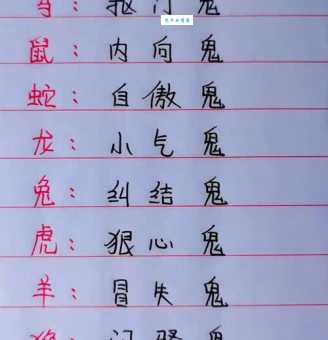 抠门鬼
鼠：内向鬼
蛇：自傲鬼
龙：小气鬼
兔：纠结鬼
虎：狠心鬼
羊：冒失鬼